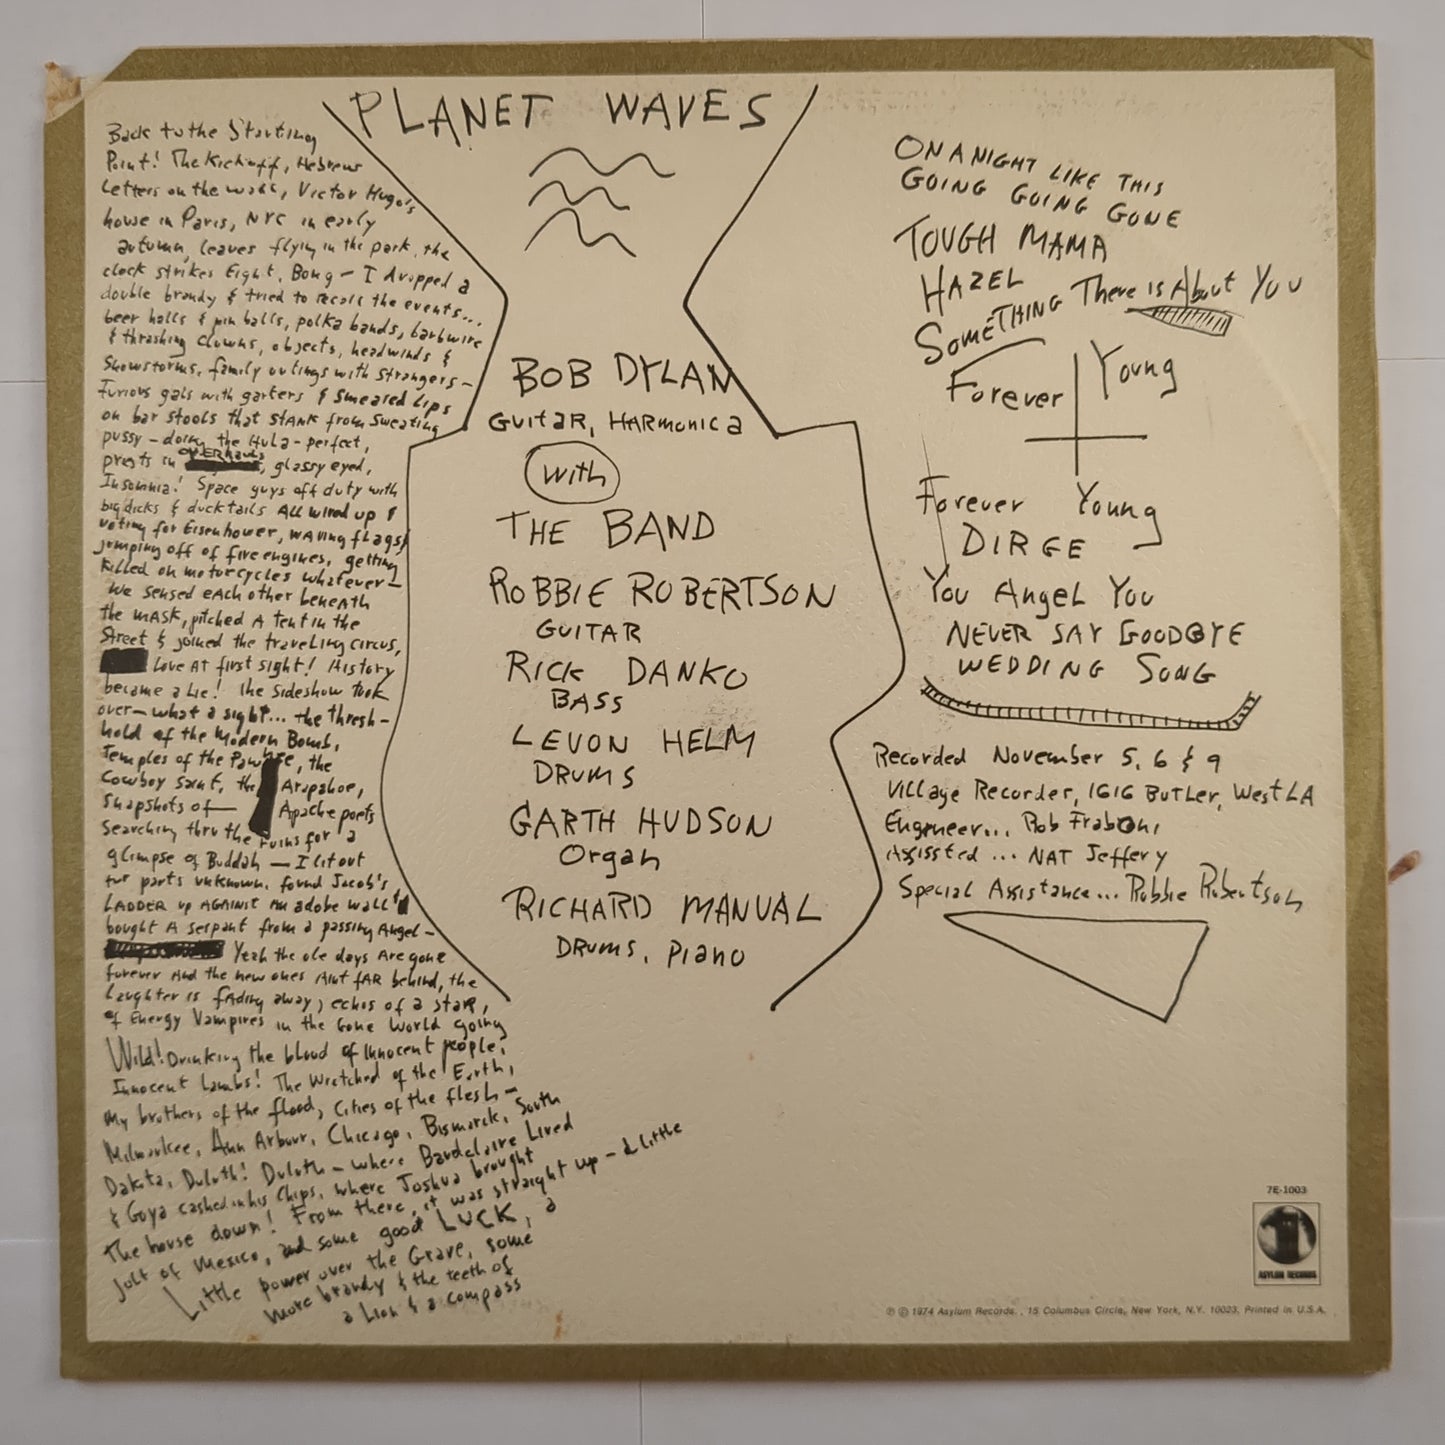 PLANET WAVES
Back to the Starting
Point! The Kickoff, Hebrew
Letters on the wall, Victor Hugo's
house in Paris, NYC in early
autumn, leaves flying in the park, the
clock strikes Eight, Bong – I dropped a
double brandy & tried to recall the events...
beer halls & pin balls, polka bands, barbwire
& thrashing clowns, objects, headwinds &
Snowstorms, family outings with strangers –
Furious gals with garters & smeared Lips
on bar stools that stank from sweating
pussy – doing the Hula – perfect,
prests in OVERHAULS, glassy eyed,
Insomnia! Space guys off duty with
big dicks & ducktails All wired up &
voting for Eisenhower, waving flags &
jumping off of fire engines, getting
killed on motorcycles whatever –
We sensed each other beneath
the mask, pitched a tent in the
Street & joined the traveling circus,
Love at first sight! History
became a Lie! the sideshow took
over – what a sight... the thresh-
hold of the Modern Bomb,
Temples of the Pawnee, the
Cowboy saint, the Arapahoe,
Snapshots of – Apache poets
Searching thru the ruins for a
glimpse of Buddah – I lit out
for parts unknown, found Jacob's
LADDER up AGAINST an adobe wall &
bought A serpant from a passing Angel –
Yeah the ole days Are gone
forever And the new ones Aint fAR behind, the
Laughter is fading away, echos of a staR,
of Energy Vampires in the Gone World going
Wild! Drinking the blood of innocent people,
Innocent Lambs! The Wretched of the Earth,
My brothers of the flood, Cities of the flesh –
Milwaukee, Ann Arbour, Chicago, Bismarck, South
Dakita, Duluth! Duluth – where Baudelaire Lived
& Goya cashed in his Chips, where Joshua brought
The house down! From there, it was straight up – a Little
jolt of Mexico, and some good LUCK, a
Little power over the Grave, some
more brandy & the teeth of
a Lion & a compass
BOB DYLAN
GUITAR, HARMONICA
With
THE BAND
ROBBIE ROBERTSON
GUITAR
RICK DANKO
BASS
LEVON HELM
DRUMS
GARTH HUDSON
Organ
RICHARD MANUAL
DRUMS, PIANO
ON A NIGHT LIKE THIS
GOING GOING GONE
TOUGH MAMA
HAZEL
SOMETHING There is About You
Forever Young
Forever Young
DIRGE
You Angel You
NEVER SAY GOODBYE
WEDDING SONG
Recorded November 5, 6 & 9
Village Recorder, 1616 Butler, West LA
Engineer... Rob Fraboni
Assissted ... NAT Jeffery
Special Assistance... Robbie Robertson
7E-1003
ASYLUM RECORDS
℗ © 1974 Asylum Records, , 15 Columbus Circle, New York, N.Y. 10023. Printed in U.S.A.